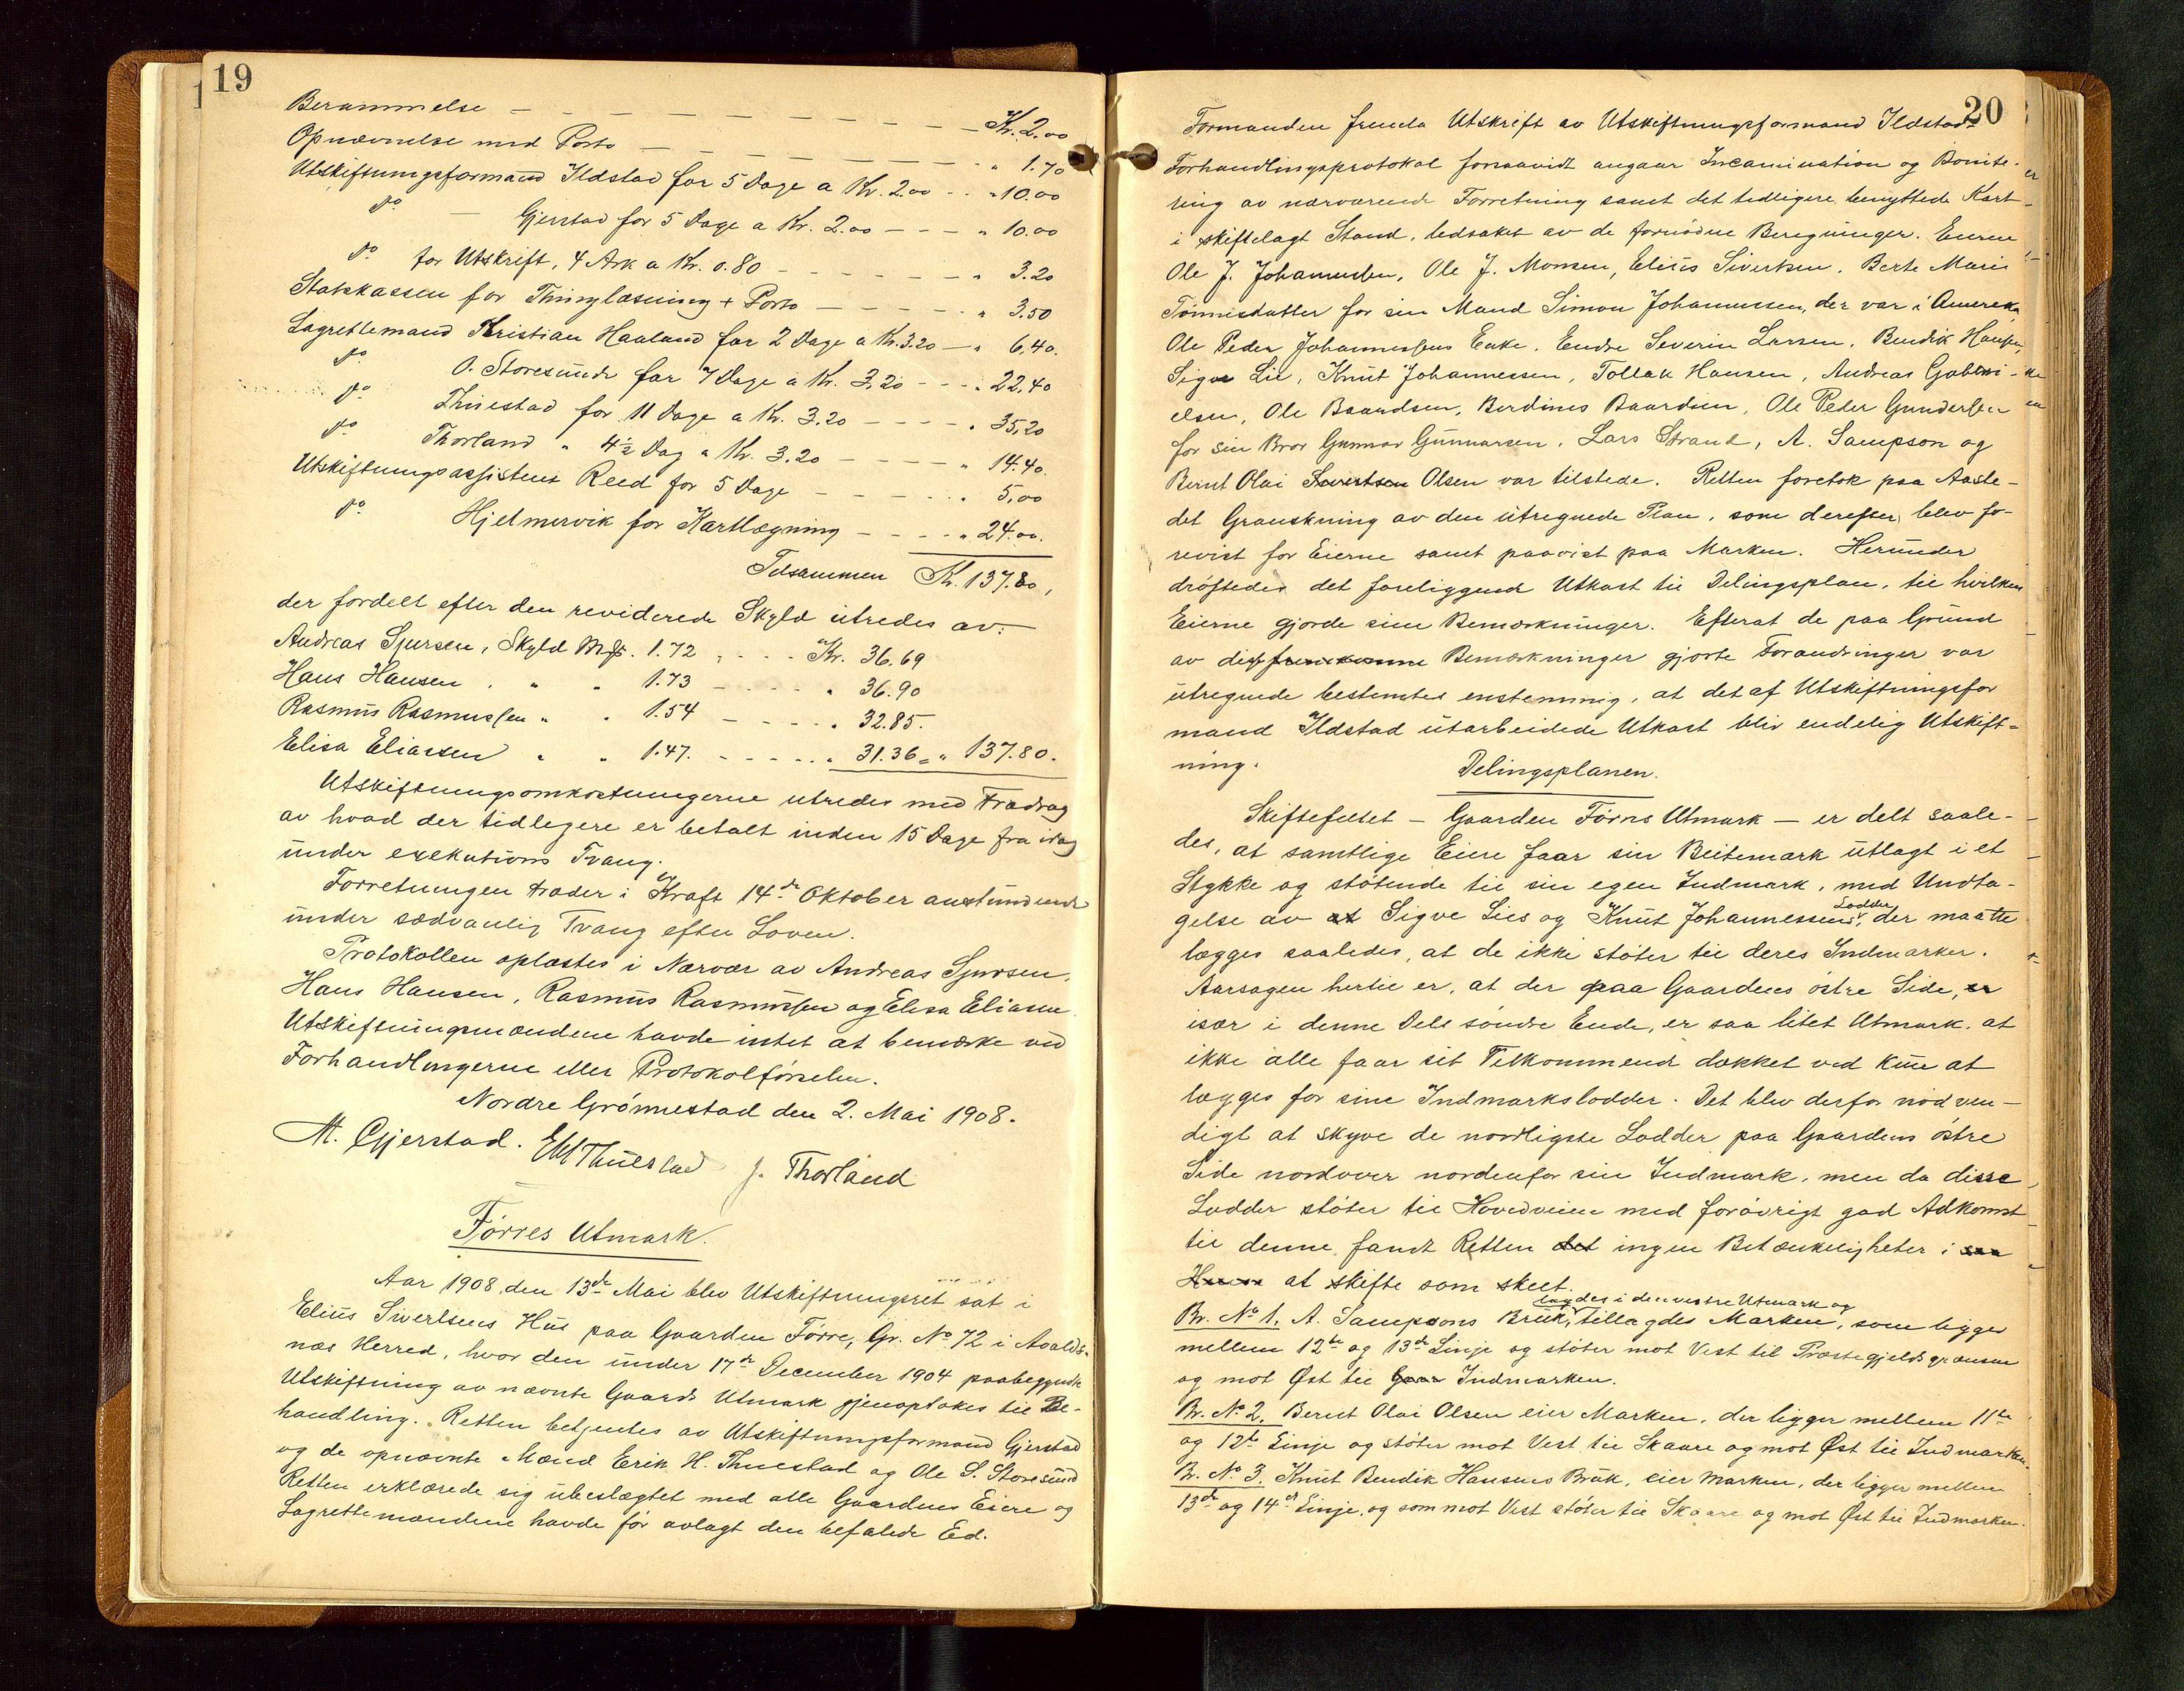 19
Berammelse — Kr. 2.00
Opnævnelse med Porto — " 1.70
Utskiftningsformand Ildstad for 5 Dage a Kr. 2.00 - - " 10.00
do — Gjerstad for 5 Dage a Kr. 2.00 - - - " 10.00
do for Utskrift, 4 Ark a Kr. 0.80 - - - " 3.20
Statskassen for Thinglæsning + Porto - - - " 3.50
Lagrettemand Kristian Haaland for 2 Dage a Kr. 3.20 - " 6.40.
do O. Storesund for 7 Dage a Kr. 3.20 - - - " 22.40
do Thuestad for 11 Dage a Kr. 3.20 - - - - " 35,20
do Thorland " 4½ Dag a Kr. 3.20 - - - - " 14.40.
Utskiftningsassistent Reed for 5 Dage - - - - " 5,00
do Hjelmervik for Kartlægning - - - - " 24.00.
Tilsammen Kr. 137.80,
der fordelt efter den reviderede Skyld utredes av:
Andreas Sjursen, Skyld Mk. 1.72 , - - - Kr. 36.69
Hans Hansen . " " 1.73 - - - - " 36.90
Rasmus Rasmussen " " 1.54 - - - - " 32.85.
Elisa Eliassen " " 1.47. - - - - - " 31.36 = " 137.80.
Utskiftningsomkostningerne utredes med Fradrag
av hvad der tidligere er betalt inden 15 Dage fra idag
under exekutions Tvang.
Forretningen træder i Kraft 14de Oktober anstundende
under sædvanlig Tvang efter Loven.
Protokollen oplæstes i Nærvær av Andreas Sjursen,
Hans Hansen, Rasmus Rasmussen og Elisa Eliassen.
Utskiftningsmændene havde intet at bemærke ved
Forhandlingerne eller Protokolførselen.
Nordre Grønnestad den 2. Mai 1908.
M. Gjerstad. E H Thuestad J. Thorland
Førres Utmark.
Aar 1908 den 13de Mai blev Utskiftningsret sat i
Elius Sivertsens Hus paa Gaarden Førre, Gr. No 72 i Avalds-
næs Herred, hvor den under 17de December 1904 paabegyndte
Utskiftning av nævnte Gaards Utmark gjenoptokes til Be-
handling. Retten betjentes av Utskiftningsformand Gjerstad
og de opnævnte Mænd Erik H. Thuestad og Ole S. Storesund
Retten erklærede sig ubeslægtet med alle Gaardens Eiere og
Lagrettemændene havde før avlagt den befalede Ed.
20
Formanden fremla Utskrift av Utskiftningsformand Ildstads
Forhandlingsprotokol forsaavidt angaar Incamination og Bonite-
ring av nærværende Forretning samt det tidligere benyttede Kart
i skiftelagt Stand, ledsaket av de fornødne Beregninger. Eierne
Ole J. Johannessen, Ole J. Monsen, Elius Sivertsen, Berte Marie
Tønnisdatter for sin Mand Simon Johannessen, der var i Amerika
Ole Peder Johannessens Enke. Endre Severin Larsen. Bendik Hansen,
Sigve Lie, Knut Johannessen, Tollak Hansen, Andreas Gabri-
elsen, Ole Baardsen, Berdines Baardsen, Ole Peder Gundersen
for sin Bror Gunnar Gunnarsen. Lars Strand, A. Sampson og
Bernt Olai Sivertsen Olsen var tilstede. Retten foretok paa Aaste-
det Granskning av den utregnede Plan, som derefter blev fo-
revist for Eierne samt paavist paa Marken. Herunder
drøftedes det foreliggende Utkast til Delingsplan, til hvilken
Eierne gjorde sine Bemærkninger. Efterat de paa Grund
av disse fremkomne Bemærkninger gjorte Forandringer var
utregnede bestemtes enstemmig, at det af Utskiftningsfor
mand Ildstad utarbeidede Utkast blir endelig Utskift-
ning.
Delingsplanen.
Skiftefeltet — Gaarden Førres Utmark — er delt saale-
des, at samtlige Eiere faar sin Beitemark utlagt i et
Stykke og støtende til sin egen Indmark, med Undta-
gelse av at Sigve Lies og Knut Johannessens Lodder, der maatte
lægges saaledes, at de ikke støter til deres Indmarker.
Aarsagen hertil er, at der paa Gaardens østre Side, er
især i denne Dels søndre Ende, er saa litet Utmark, at
ikke alle faar sit Tilkommende dækket ved kun at
lægges for sine Indmarkslodder. Det blev derfor nødven-
digt at skyve de nordligste Lodder paa Gaardens østre
Side nordover nordenfor sin Indmark, men da disse
Lodder støter til Hovedveien med forøvrigt god Adkomst
til denne, fandt Retten det ingen Betænkeligheter i saa
at skifte som skeet.
lagdes i den vestre Utmark og
Br. No 1. A. Sampsons Bruk, tillagdes Marken, som ligger
mellem 12te og 13de Linje og støter mot Vest til Præstegjeldsgrænsen
og mot Øst til Gaar Indmarken.
Br. No 2. Bernt Olai Olsen eier Marken, der ligger mellem 11te
og 12te Linje og støter mot Vest til Skaare og mot Øst til Indmarken.
Br. No 3. Knut Bendik Hansens Bruk, eier Marken, der ligger mellem
13de og 14de Linje, og som mot Vest støter til Skaare og mot Øst til Indmarken.